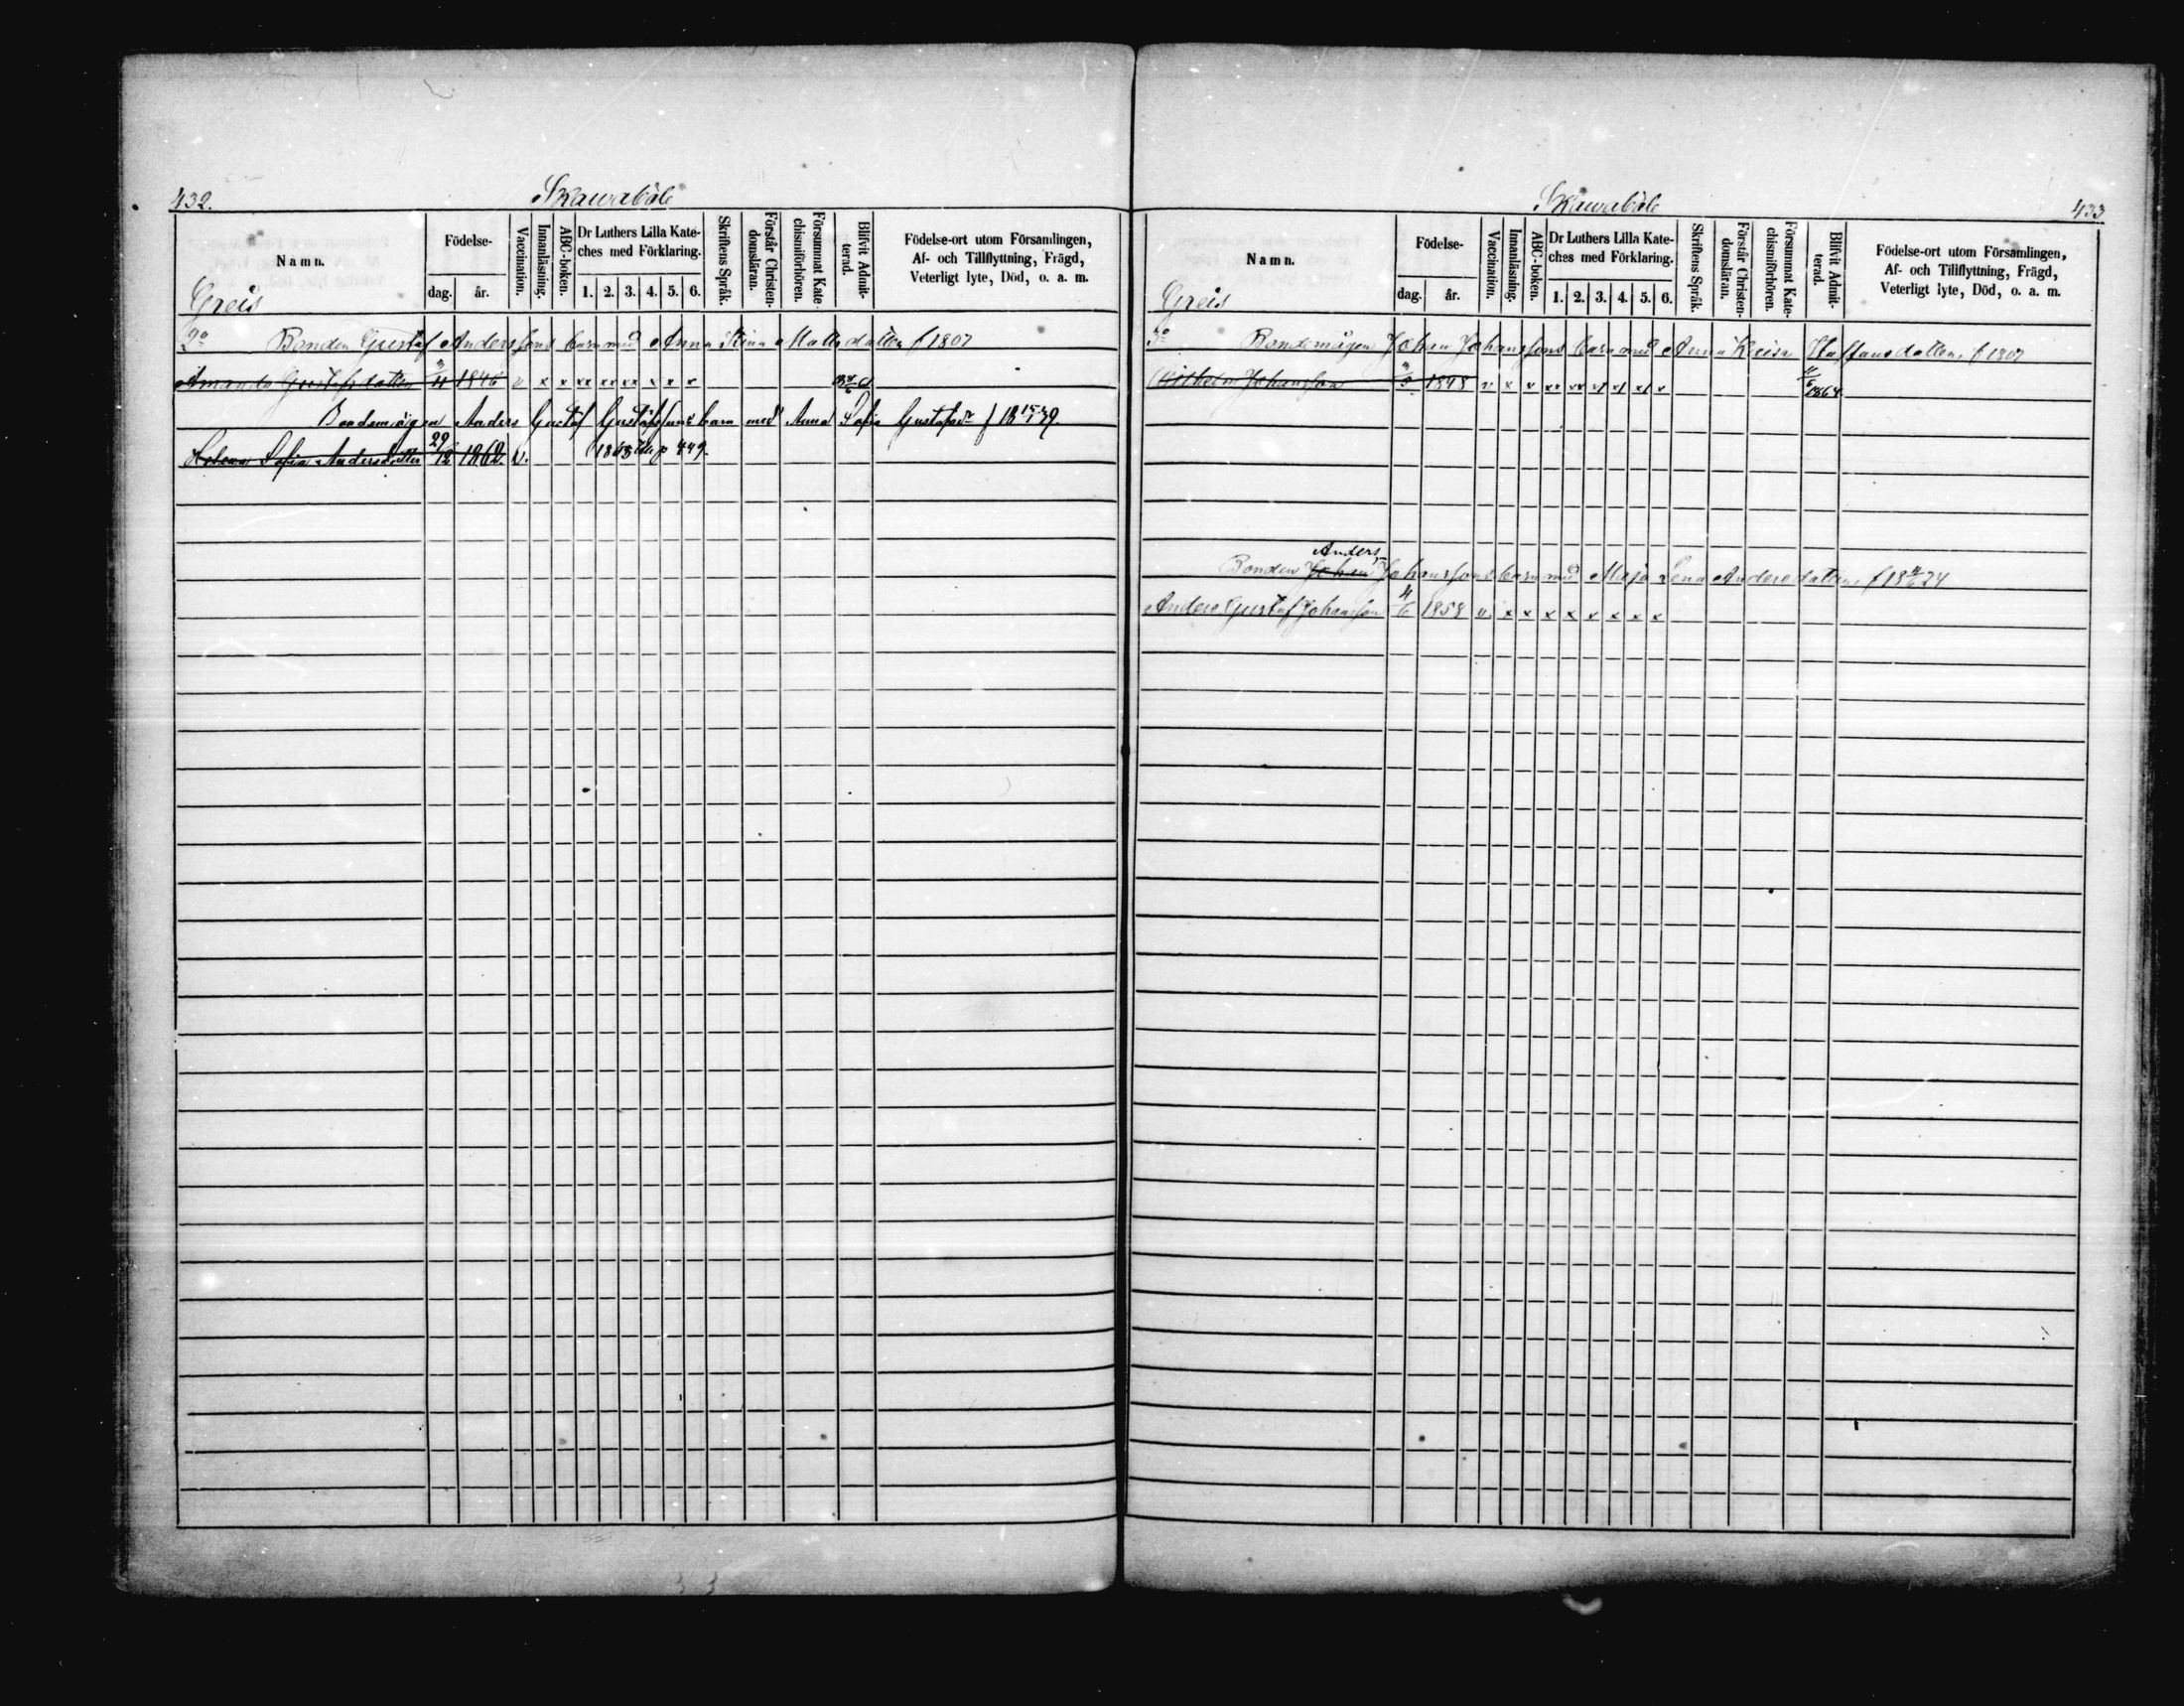 432.
Skaurabôle
Namn.
Födelse-
dag. år.
Vaccination.
Innanläsning.
ABC-boken.
Dr Luthers Lilla Kate-
ches med Förklaring.
1. 2. 3. 4. 5. 6.
Skriftens Språk.
Förstår Christen-
domsläran.
Försummat Kate
chismiförhören.
Blifvit Admit-
terad.
Födelse-ort utom Församlingen,
Af- och Tillflyttning, Frägd,
Veterligt lyte, Död, o. a. m.
Greis
2o Bonden Gustaf Anderssons barn med Anna Stina Matts dotter f 1807
Amanda Gustafsdotter 1846 v x x xx xx xx x x x
Bondemågen Anders Gustaf Gustafssons barn med Anna Sofia Gustafsdr f 18 15/1 39.
Helena Sofia Andersdotter 29/12 1862. v. 1863 p 449.
Skaurabôle
433
Namn.
Födelse-
dag. år.
Vaccination.
Innanläsning.
ABC-boken.
Dr Luthers Lilla Kate-
ches med Förklaring.
1. 2. 3. 4. 5. 6.
Skriftens Språk.
Förstår Christen-
domsläran.
Försummat Kate-
chismiförhören.
Blifvit Admit-
terad.
Födelse-ort utom Församlingen,
Af- och Tillflyttning, Frägd,
Veterligt lyte, Död, o. a. m.
Greis
3o Bondemågen Johan Johanssons barn med Anna Staffansdotter f 1807
Wilhelm Johansson 1848 v x x xx xx x/ x/ x/ x 1864
Anders
Bonden Johan Johanssons barn med Maja Lena Andersdotter f 18 24
Anders Gustaf Johansson 4/6 1858 v. x x x x x x x x